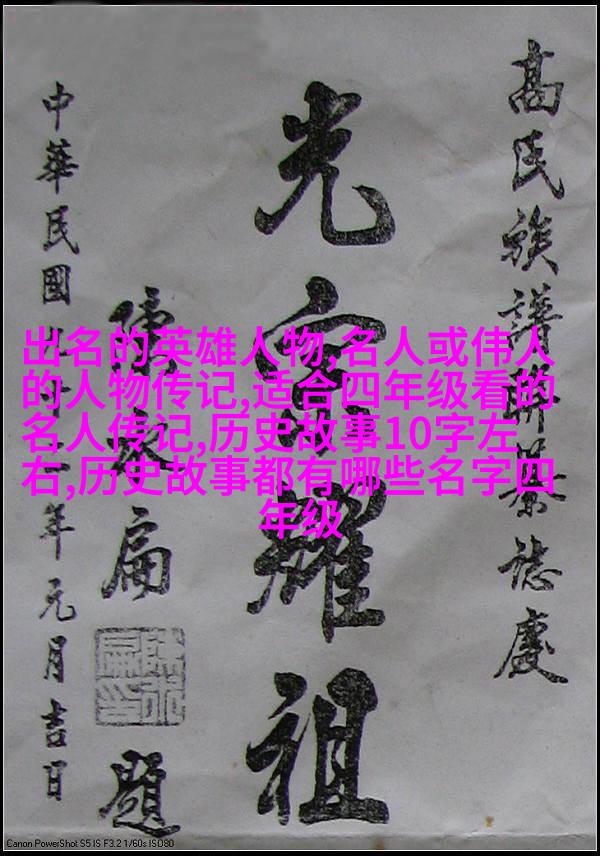 高氏族譜聯慶
光宗耀祖
陳水扁題
中華民國年元月吉日
出名的英雄人物,名人或伟人
的人物传记,适合四年级看的
名人传记,历史故事10字左
右,历史故事都有哪些名字四
年级
Canon PowerShot S5 IS F3.2 1/60s ISO80